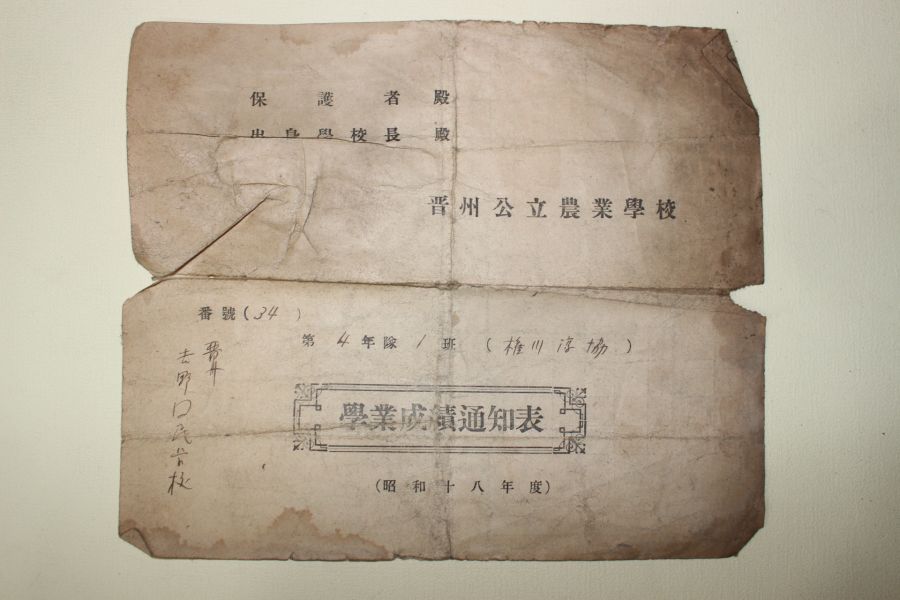 保護者殿
出身學校長殿
晋州公立農業學校
番號(34)
第4年隊1班(椎川淳協)
學業成績通知表
(昭和十八年度)
吉野口民学校